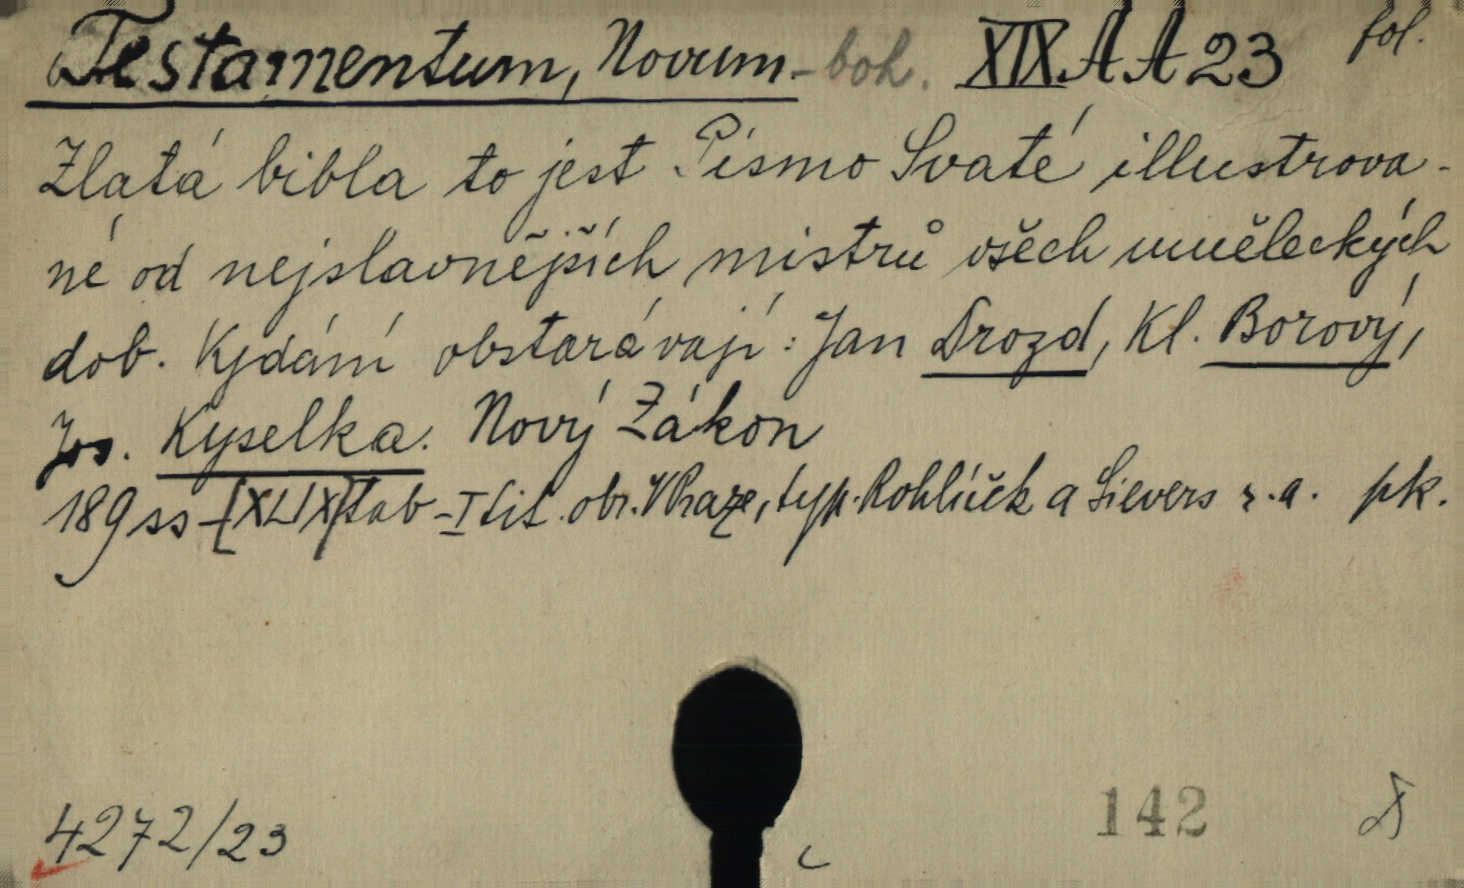 Testamentum, Novum - boh. XIX A A 23 fol.
Zlatá bibla to jest Písmo Svaté illustrova-
né od nejslavnějších mistrů všech uměleckých
dob. Vydání obstarávají: Jan Drozd, Kl. Borový,
Jos. Kyselka. Nový Zákon
189 ss - [XLIX] tab - I tit. obr. V Praze, typ. Rohlíček a Sievers s.a. pk.
4272/23
142